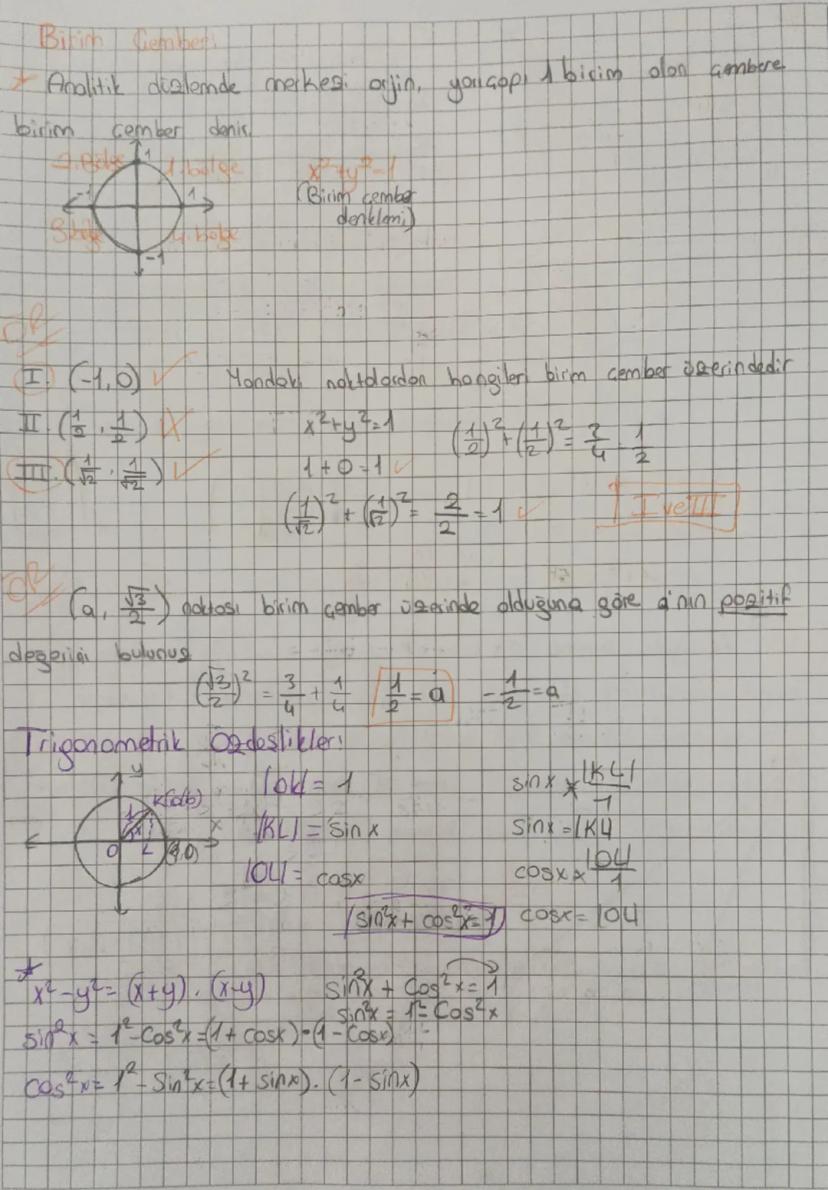 Birim Çember:
* Analitik düzlemde merkezi orjin, yarıçapı 1 birim olan çembere
birim çember denir.
1
2.Bölge 1.bölge
-1 1
3.bölge 4.bölge
-1
x²+y²=1
(Birim çember
denklemi)
ÖR
I. (-1,0) ✓ Yandaki noktalardan hangileri birim çember üzerindedir
II. (1/2, 1/2) X x²+y²=1 (1/2)²+(1/2)²= 2/4 = 1/2
III. (1/√2, 1/√2) ✓ 1+0=1 ✓
(1/√2)² + (1/√2)² = 2/2 = 1 ✓ I ve III
ÖR
(a, √3/2) noktası birim çember üzerinde olduğuna göre a'nın pozitif
değerini bulunuz
(√3/2)² = 3/4 + 1/4 1/2 = a -1/2 = a
Trigonometrik Özdeşlikler:
y
K(a,b)
1
x
O L (1,0)
|OK| = 1
|KL| = sinx
|OL| = cosx
sin²x + cos²x = 1
sinx = |KL|/1
sinx = |KL|
cosx = |OL|/1
cosx = |OL|
* x²-y² = (x+y).(x-y) sin²x + cos²x = 1
sin²x = 1²-cos²x
sin²x = 1²-cos²x = (1+cosx)·(1-cosx)
cos²x = 1²-sin²x = (1+sinx).(1-sinx)